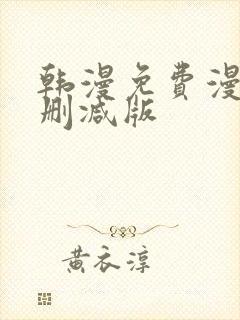 韩漫免費漫
删减版
黄衣淳